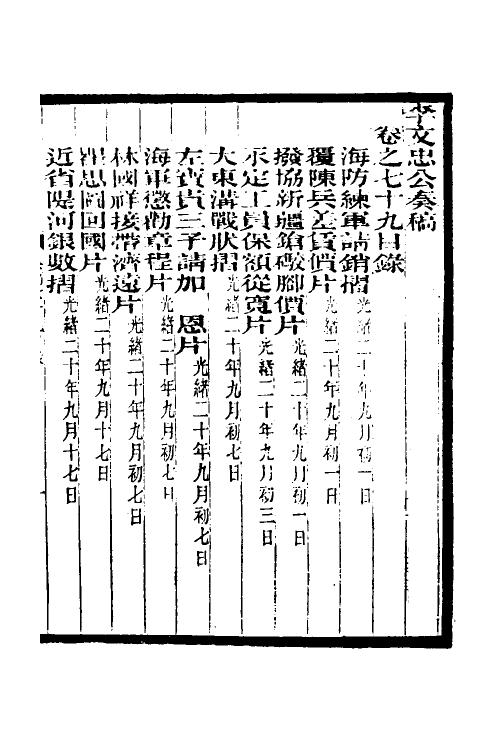 李文忠公奏稿
卷之七十九目錄
海防練軍請銷摺 光緒二十年九月初一日
覆陳兵差賃價片 光緒二十年九月初一日
撥協新疆鎗礮腳價片 光緒二十年九月初一日
永定工員保額從寬片 光緒二十年九月初三日
大東溝戰狀摺 光緒二十年九月初七日
左寶貴三子請加 恩片 光緒二十年九月初七日
海軍懲勸章程片 光緒二十年九月初七日
林國祥接帶濟遠片 光緒二十年九月初七日
思圖回國片 光緒二十年九月十七日
近省隄河銀數摺 光緒二十年九月十七日